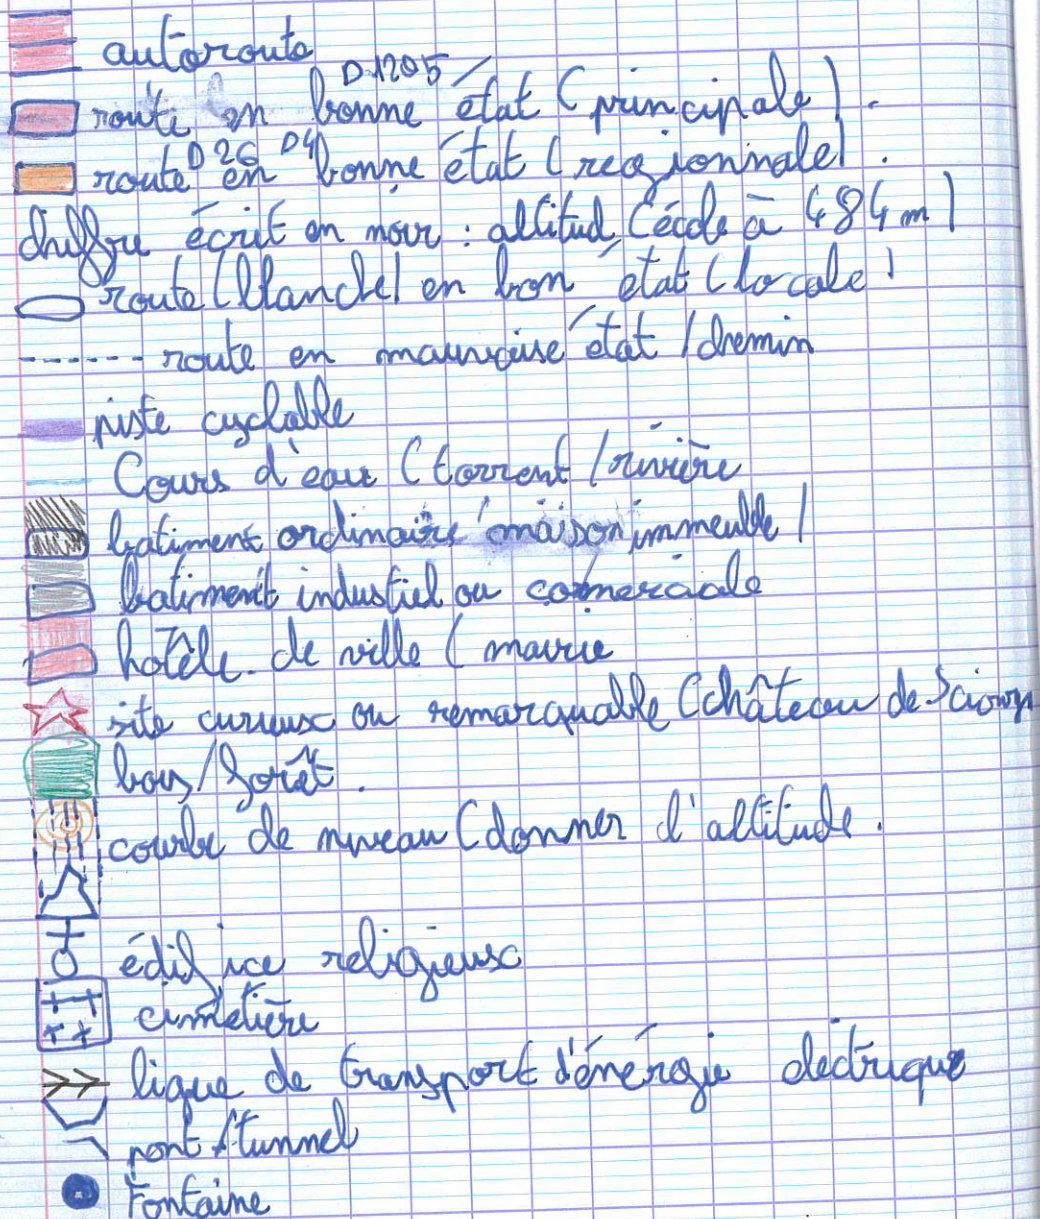 autoroute
D1205
route en bonne état (principale).
D26 D4
route en bonne état (regionnale).
chiffre écrit en noir : altitud (école à 484 m)
route (blanche) en bon état (locale)
route en mauvaise état / chemin
piste cyclable
Cours d'eau (torrent / rivière
batiment ordinaire (maison immeuble)
batiment industiel ou commerciale
hotêle de ville ( mairie
site curieux ou remarquable (château de
bois / forêt.
courbe de niveau (donner l'altitude.
édifice religieux
cimetière
ligne de transport d'énérgie electrique
pont / tunnel
Fontaine